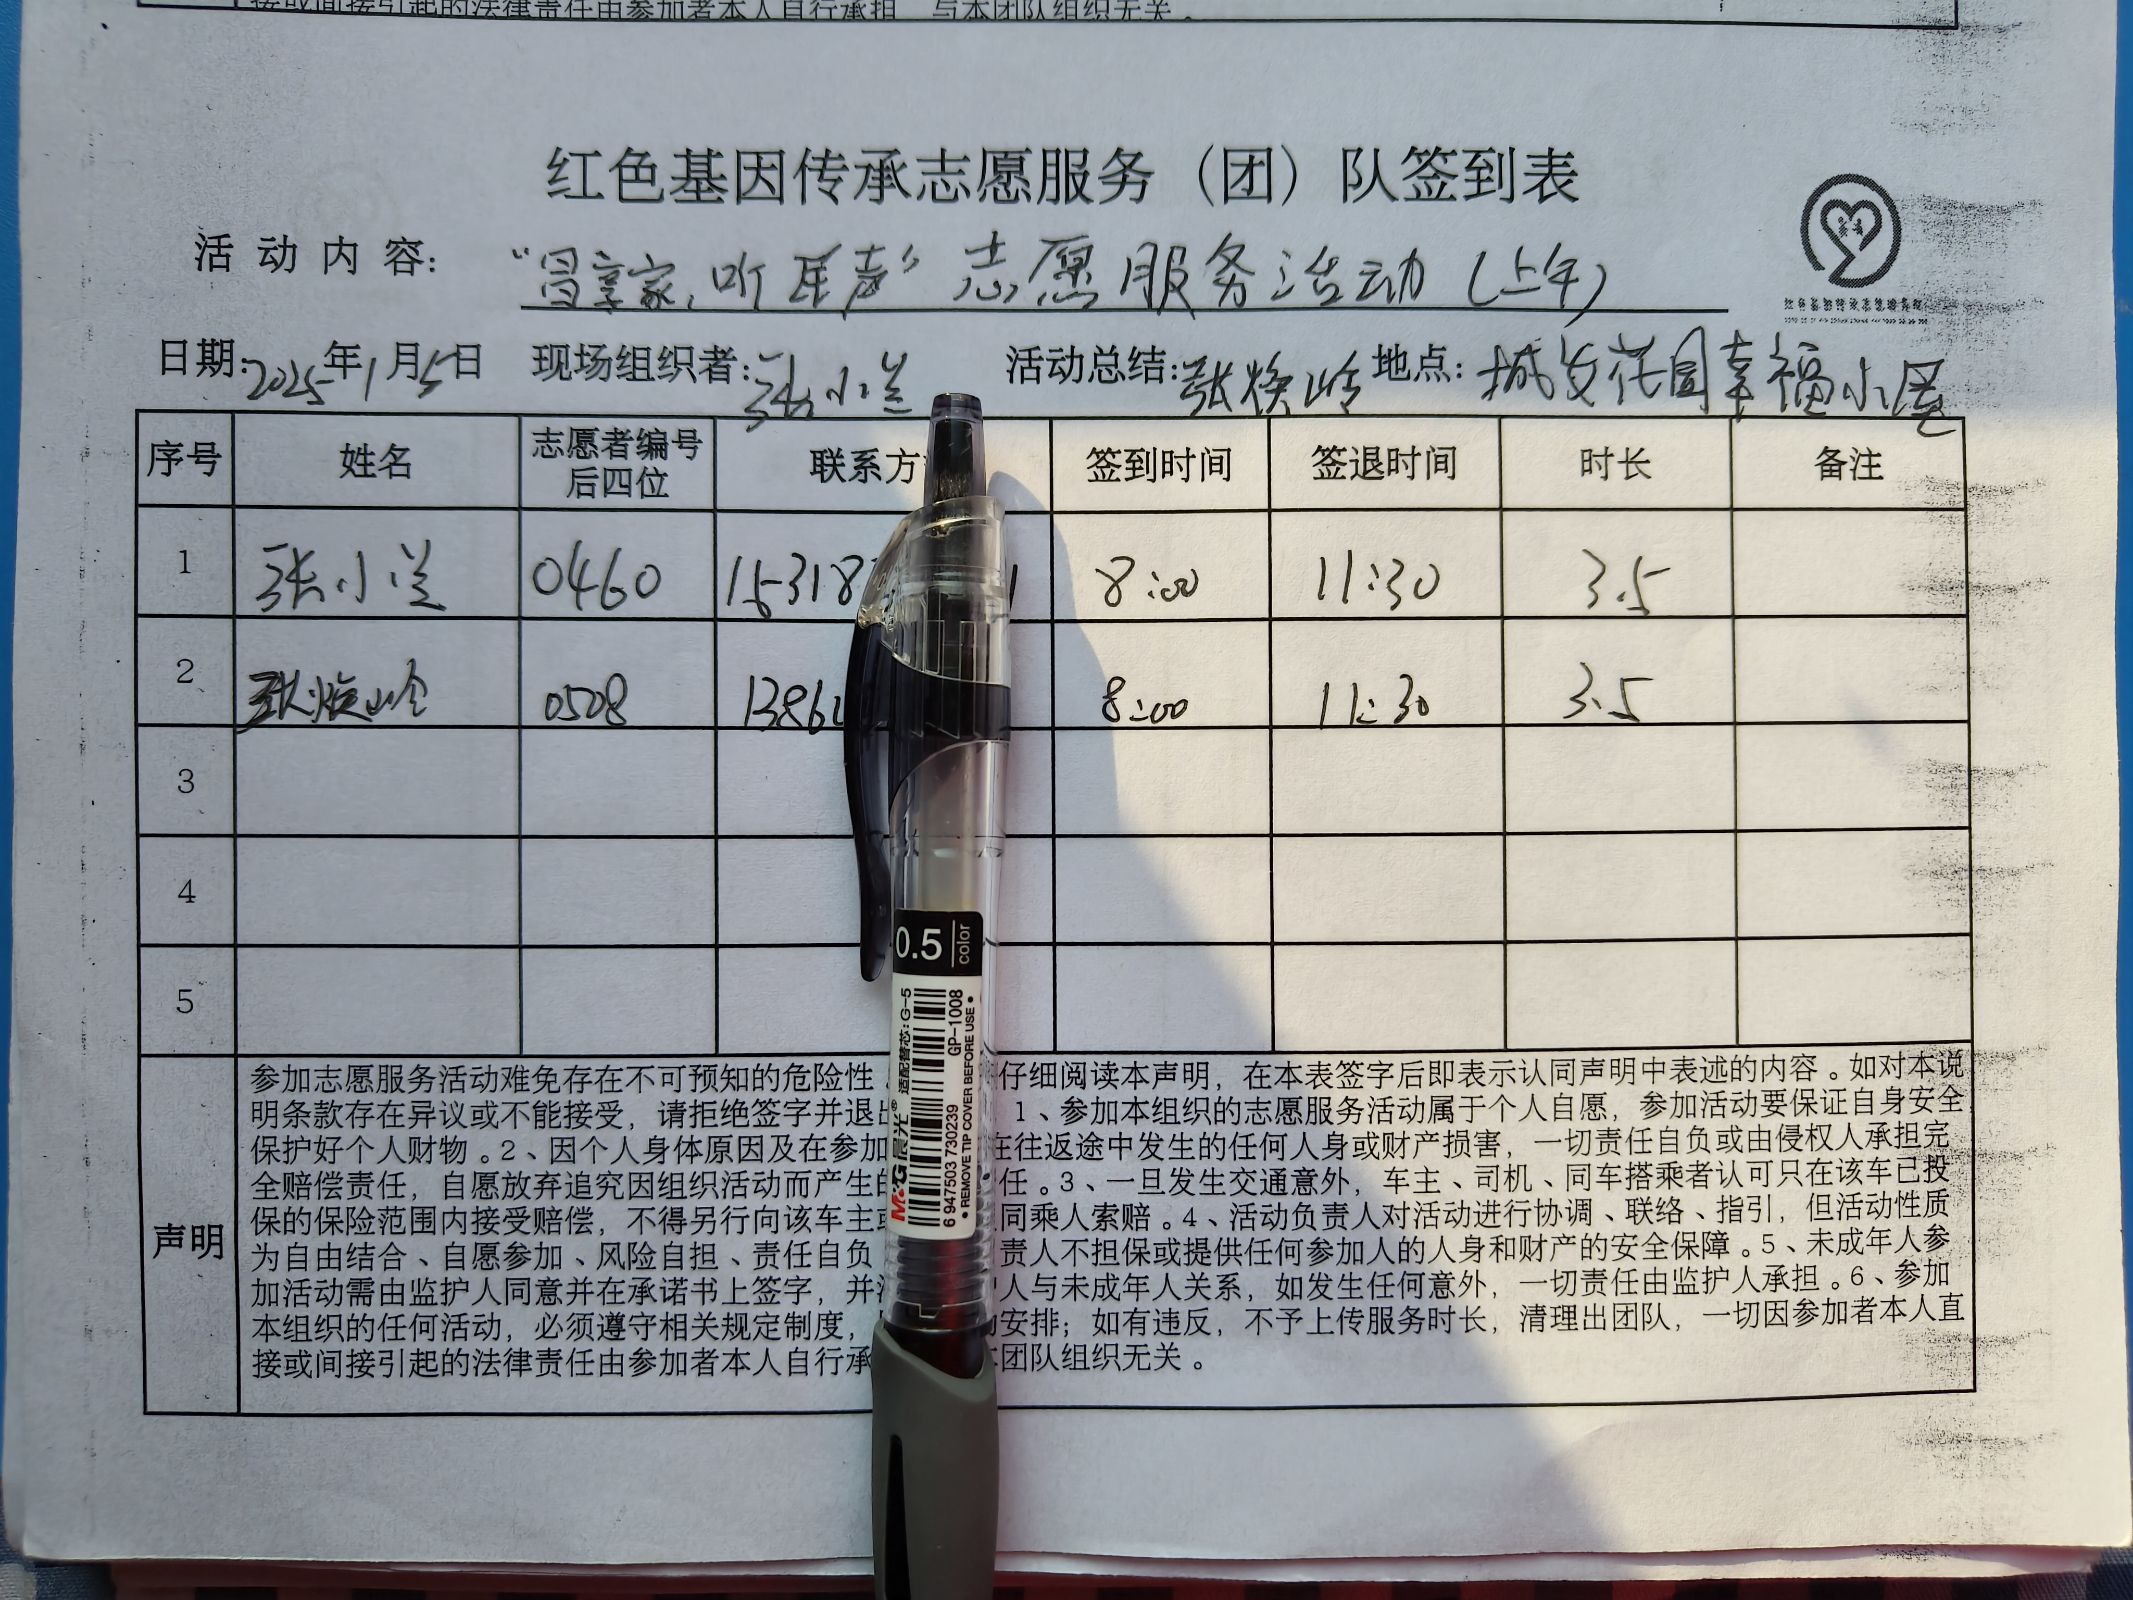 接或间接引起的法律责任由参加者本人自行承担，与本团队组织无关。
红色基因传承志愿服务（团）队签到表
活动内容：“冒享家，听民声”志愿服务活动（上午）
日期：2025年1月5日 现场组织者：张小兰 活动总结：张焕岭 地点：城发花园幸福小屋
序号 姓名 志愿者编号后四位 联系方 签到时间 签退时间 时长 备注
1 张小兰 0460 15318 1 8:00 11:30 3.5
2 张焕岭 0508 1386 8:00 11:30 3.5
3
4
5
声明
参加志愿服务活动难免存在不可预知的危险性 仔细阅读本声明，在本表签字后即表示认同声明中表述的内容。如对本说
明条款存在异议或不能接受，请拒绝签字并退 1、参加本组织的志愿服务活动属于个人自愿，参加活动要保证自身安全
保护好个人财物。2、因个人身体原因及在参加 在往返途中发生的任何人身或财产损害，一切责任自负或由侵权人承担完
全赔偿责任，自愿放弃追究因组织活动而产生的 任。3、一旦发生交通意外，车主、司机、同车搭乘者认可只在该车已投
保的保险范围内接受赔偿，不得另行向该车主或 同乘人索赔。4、活动负责人对活动进行协调、联络、指引，但活动性质
为自由结合、自愿参加、风险自担、责任自负 责人不担保或提供任何参加人的人身和财产的安全保障。5、未成年人参
加活动需由监护人同意并在承诺书上签字，并 人与未成年人关系，如发生任何意外，一切责任由监护人承担。6、参加
本组织的任何活动，必须遵守相关规定制度， 安排；如有违反，不予上传服务时长，清理出团队，一切因参加者本人直
接或间接引起的法律责任由参加者本人自行承 团队组织无关。
0.5 color
M&G晨光® 适配替芯：G-5
6 947503 730239
GP-1008
• REMOVE TIP COVER BEFORE USE •